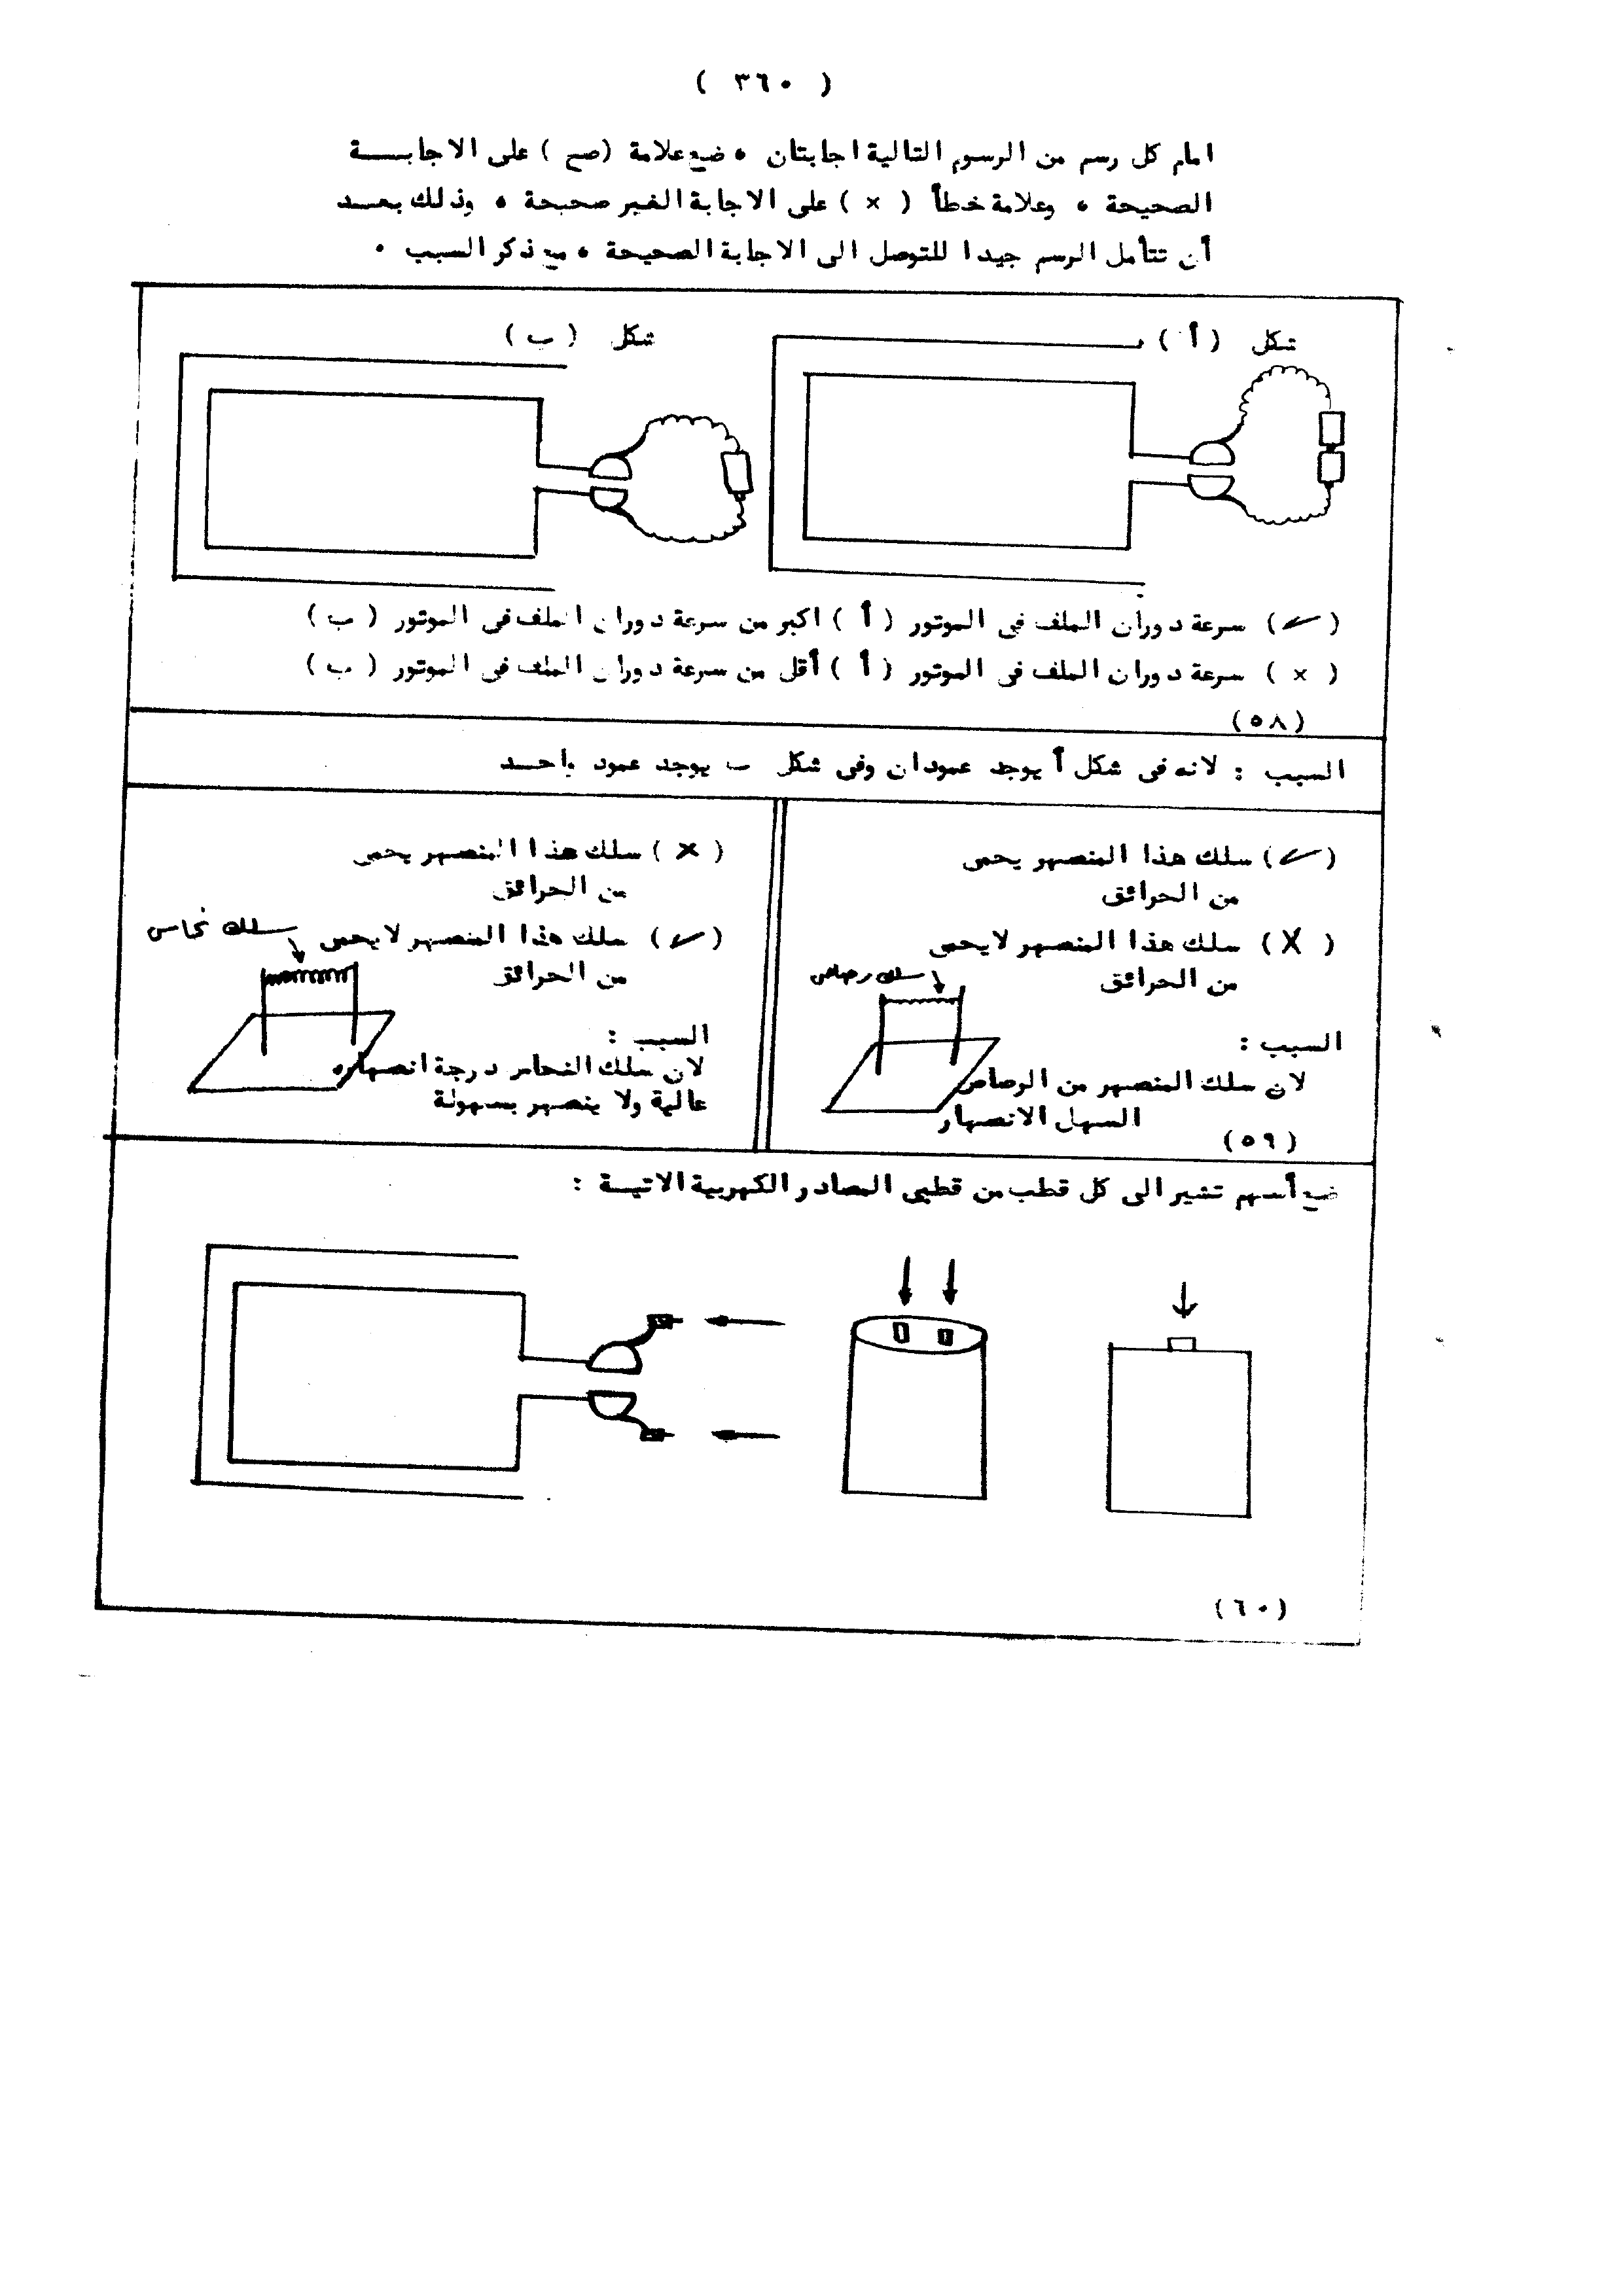 ( ٣٦٠ )
امام كل رسم من الرسوم التالية اجابتان ٠ ضع علامة ( صح ) على الاجابـــة
الصحيحة ٠ وعلامة خطأ ( × ) على الاجابة الغير صحيحة ٠ وذلك بعـــد
أن تتأمل الرسم جيدا للتوصل الى الاجابة الصحيحة ٠ مع ذكر السبب ٠
شكل ( أ )
شكل ( ب )
( ✓ ) سرعة دوران الملف فى الموتور ( أ ) اكبر من سرعة دوران الملف فى الموتور ( ب )
( × ) سرعة دوران الملف فى الموتور ( أ ) أقل من سرعة دوران الملف فى الموتور ( ب )
(٥٨)
السبب : لانه فى شكل أ يوجد عمودان وفى شكل ب يوجد عمود واحـــد
( ✓ ) سلك هذا المنصهر يحمى
من الحرائق
( X ) سلك هذا المنصهر لايحمى
من الحرائق
سلك رصاص
السبب :
لان سلك المنصهر من الرصاص
السهل الانصهار
(٥٩)
( × ) سلك هذا المنصهر يحمى
من الحرائق
( ✓ ) سلك هذا المنصهر لايحمى
من الحرائق
سلك نحاس
السبب :
لان سلك النحاس درجة انصهاره
عالية ولا ينصهر بسهولة
ضع أسهم تشير الى كل قطب من قطبى المصادر الكهربية الاتيــة :
(٦٠)